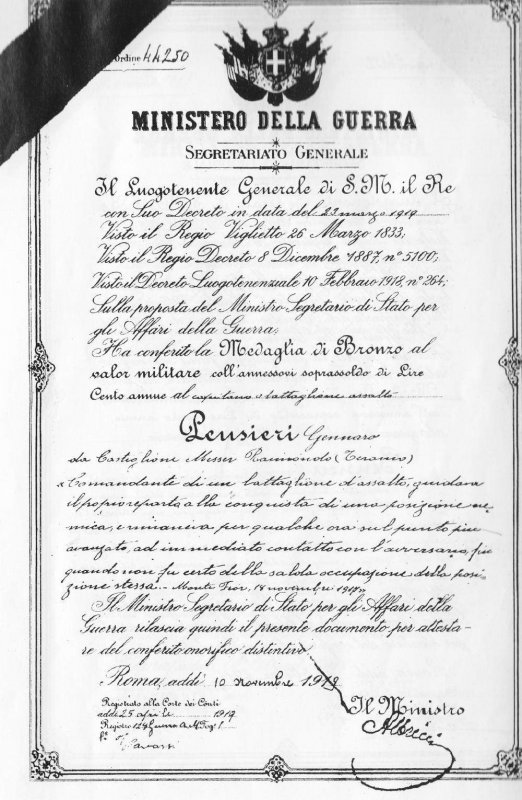 Ordine 44250
MINISTERO DELLA GUERRA
SEGRETARIATO GENERALE
Il Luogotenente Generale di S.M. il Re
con Suo Decreto in data del 23 marzo 1919
Visto il Regio Viglietto 26 Marzo 1833;
Visto il Regio Decreto 8 Dicembre 1887, n° 5100;
Visto il Decreto Luogotenenziale 10 Febbraio 1918, n° 264;
Sulla proposta del Ministro Segretario di Stato per
gli Affari della Guerra;
Ha conferito la Medaglia di Bronzo al
valor militare coll'annessovi soprassoldo di Lire
Cento annue al capitano battaglione assalto
Pensieri Gennaro
da Castiglione Messer Raimondo (Teramo)
Comandante di un battaglione d'assalto, guidava
il proprio reparto alla conquista di una posizione ne-
mica, e rimaneva per qualche ora sul punto più
avanzato, ad immediato contatto con l'avversario,
quando non fu certo della salda occupazione della posi-
zione stessa. - Monte 18 novembre 1917
Il Ministro Segretario di Stato per gli Affari della
Guerra rilascia quindi il presente documento per attesta-
re del conferito onorifico distintivo
Roma, addì 10 novembre 1919
Registrato alla Corte dei Conti
addì 25 aprile 1919
Registro 128 Guerra
Il Ministro
Albricci